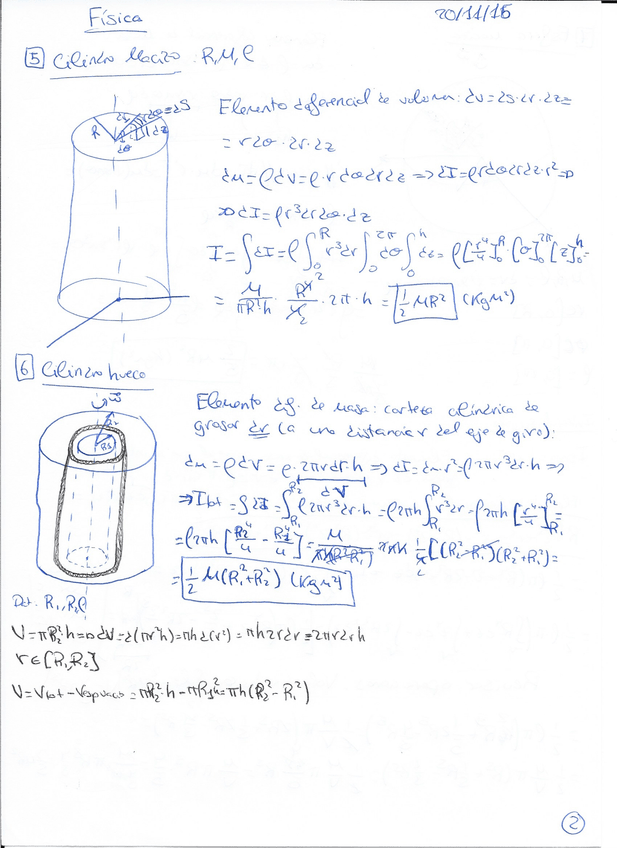 Física
20/11/15
5 Cilindro Macizo: R, M, ρ
R
dθ
rdθ=dS
dz
Elemento diferencial de volumen: dV=dS·dr·dz=
=rdθ·dr·dz
dm=ρdV=ρ·r dθdrdz ⇒ dI=ρrdθdrdz·r²⇒
⇒ dI=ρr³drdθ·dz
I=∫dI=ρ∫₀ᴿ r³dr∫₀²π dθ∫₀ʰ dz=ρ[r⁴/4]₀ᴿ·[θ]₀²π[z]₀ʰ=
= M/(πR²h) · R⁴/4 · 2π·h = 1/2 MR² (Kgm²)
6 Cilindro hueco
Elemento dif. de masa: corteza cilíndrica de
grosor dr (a una distancia r del eje de giro):
dm=ρdV=ρ·2πrdr·h ⇒ dI=dm·r²=ρ2πr³dr·h ⇒
dV
⇒ Itot=∫dI=∫R₁R₂ ρ2πr³dr·h=ρ2πh∫R₁R₂ r³dr=ρ2πh[r⁴/4]R₁R₂=
=ρ2πh[R₂⁴/4 - R₁⁴/4]= M/(πh(R₂²-R₁²)) 2πh 1/4[(R₂²-R₁²)(R₂²+R₁²)=
= 1/2 M(R₁²+R₂²) (Kgm²)
Dat. R₁, R₂, ρ
V=πR₂²h ⇒ dV=d(πr²h)=πhd(r²)=πh2rdr=2πrdrh
r∈[R₁,R₂]
V=Vtot-Vespvacio=πR₂²·h-πR₁²h=πh(R₂²-R₁²)
2